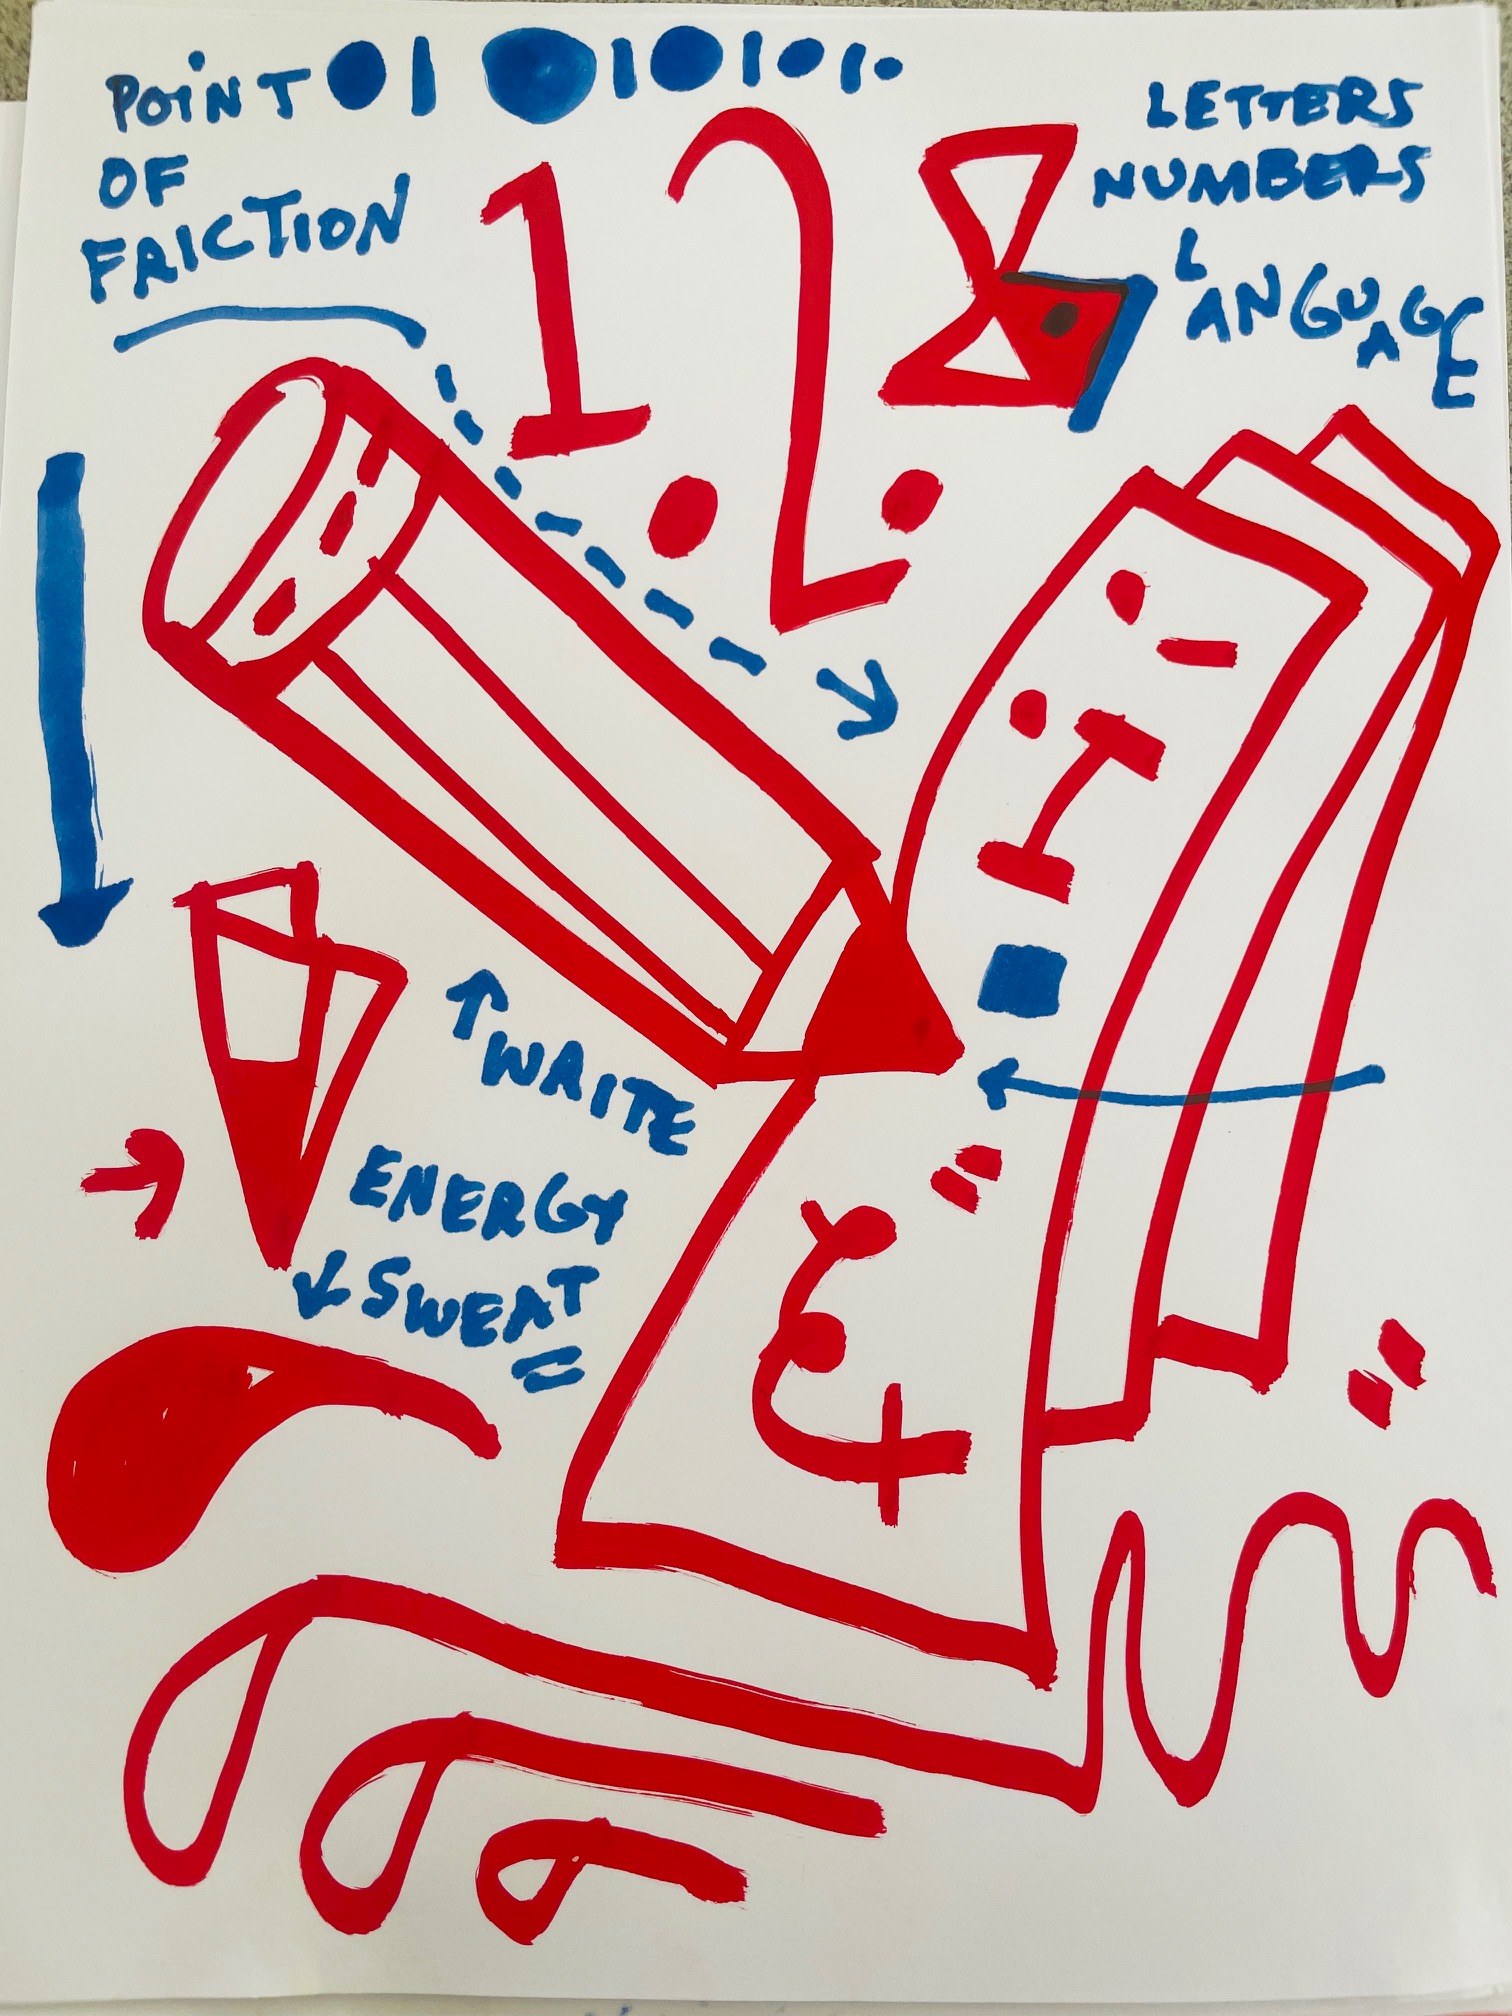 POINT
OF
FRICTION
1 2 3
LETTERS
NUMBERS
LANGUAGE
WRITE
ENERGY
SWEAT